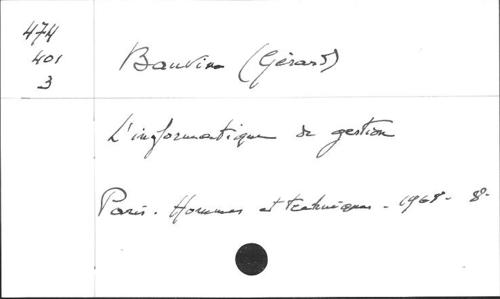 474
401
3
Bauvin (Gérard)
L'informatique de gestion
Paris. Hommes et techniques - 1968 - 8°